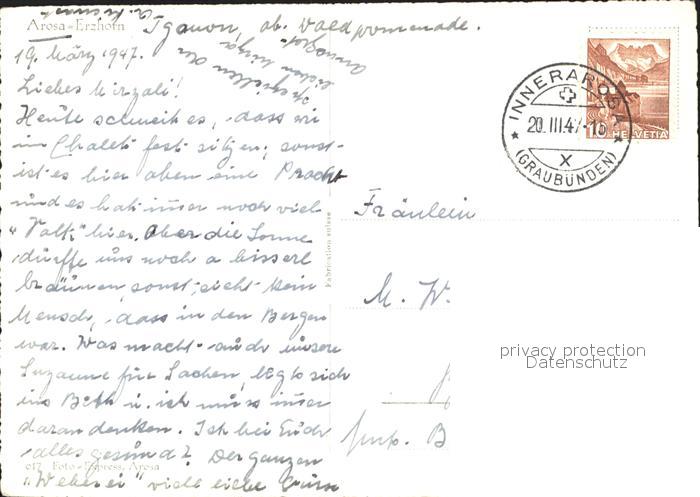 Arosa-Erzhorn
ob. Waldpromenade.
19. März 1947.
Liebes Mirzali!
Heute schneit es, dass wir
im Chalet fest sitzen, sonst
ist es hier oben eine Pracht
und es hat immer noch viel
"Volk" hier. Aber die Sonne
dürfte uns noch a bisserl
bräunen, sonst sieht kein
Mensch, dass in den Bergen
war. Was macht auch unsere
Suzanne für Sachen, legt sich
ins Bett u. ich muss immer
daran denken. Ist bei Euch
alles gesund? Der ganzen
"Weberei" viele liebe Grüsse
617 Foto-Express, Arosa
Fabrication suisse
INNERAROSA
20.III.47-18
X
(GRAUBÜNDEN)
10 HELVETIA
Fräulein
M. W.
B
privacy protection
Datenschutz